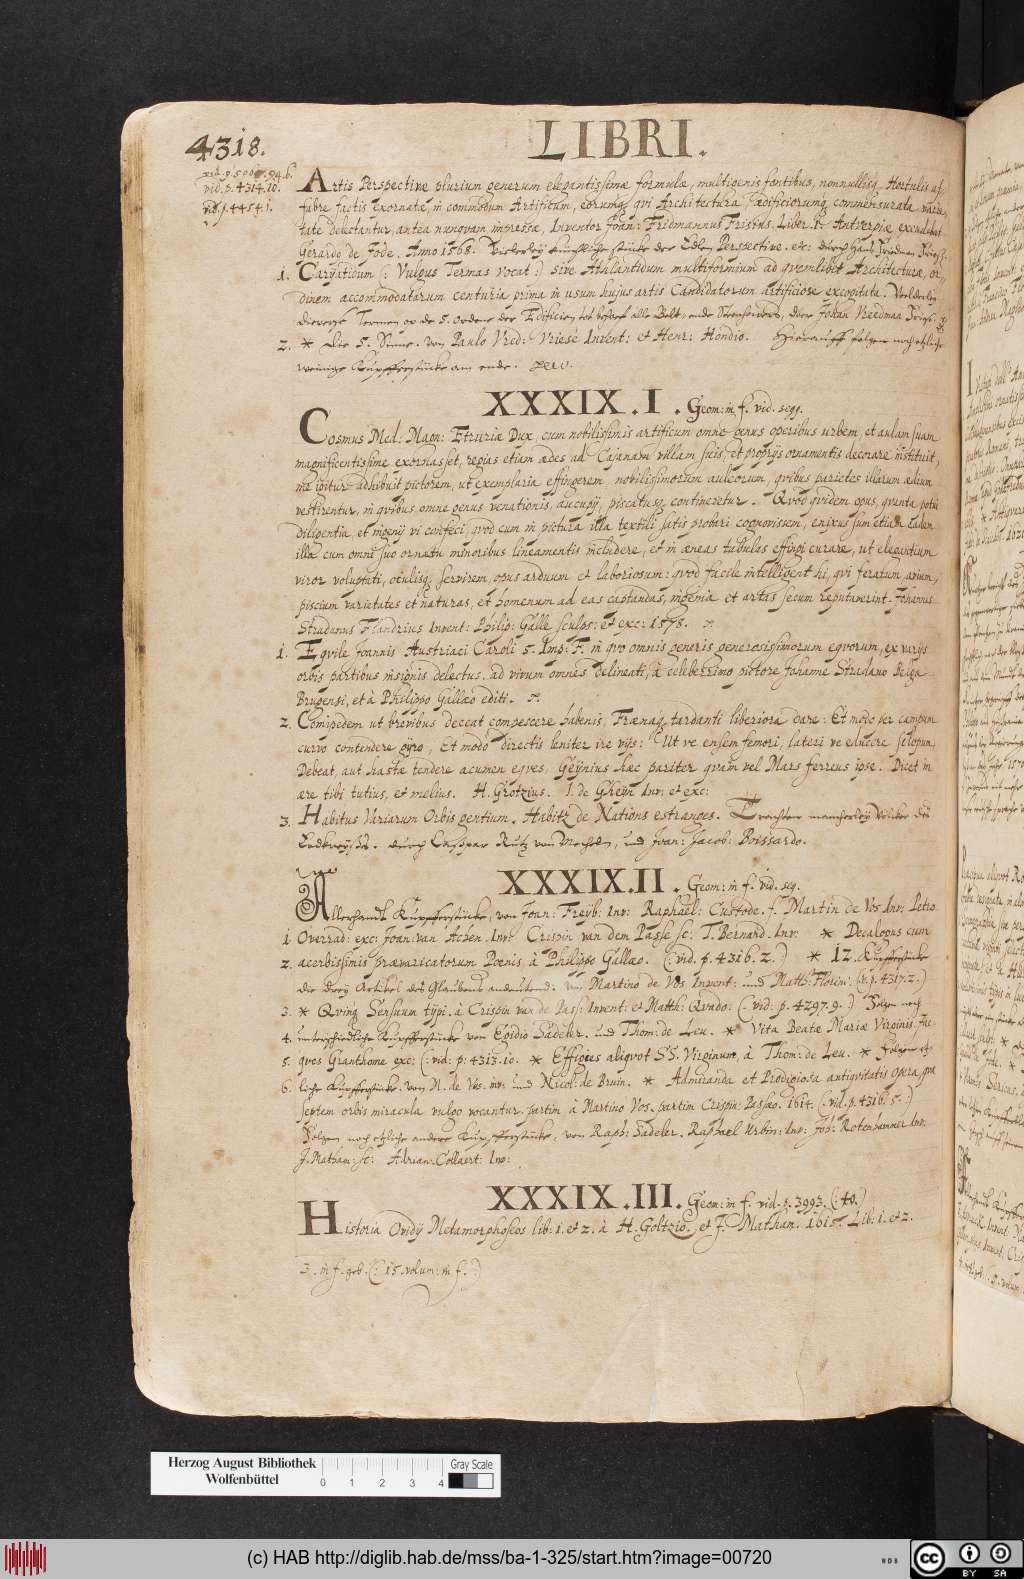 4318.
LIBRI.
vid. p. 4314.10.
vid. p. 4454.1.
Artis Perspectivæ plurium generum elegantissimæ formulæ, multigenis fontibus, nonnullisq. Hortulis af-
fabre factis exornatæ, in commodum Artificum, eorumq. qvi Architectura, ædificiorumq. commensurata varie-
tate delectantur, antea nunqvam impressæ, Inventor Joan: Fridmannus Frisius. Liber 1. Antverpiæ excudebat
Gerardo de Jode. Anno 1568. Vielerley künstliche stücke der Edlen Perspective. etc: durch Hans Friedman Friess.
1. Caryatidum (: Vulgus Termas vocat :) sive Athlantidum multiformium ad qvemlibet Architecturæ or-
dinem accommodatarum centuria prima in usum hujus artis Candidatorum artificiose excogitata. Veelderley
dieverse Termen op de 5. ordene der Edificien tot behoef alle Belt, ende Steenhowers, door Johan Vreedman Friese.
2. * Der 5. Sinne. von Paulo Vred: Vriese Invent: et Henr: Hondio. Hierauff folgen noch etliche
wenige Kupfferstücke am ende.
XXXIX.I. Geom: in f. vid. seqq.
Cosmus Med: Magn: Etruriæ Dux, cum nobilissimis artificum omne genus operibus urbem, et aulam suam
magnificentissime exornasset, regias etiam ædes ad Cajanam villam suis, et proprijs ornamentis decorare instituit,
me igitur adhibuit pictorem, ut exemplaria effingerem nobilissimorum auleorum, qvibus parietes illarum ædium
vestirentur, in qvibus omne genus venationis, aucupij, piscatusq. contineretur. Qvod qvidem opus, qvanta potui
diligentia, et ingenij vi confeci, qvod cum in pictura illa textili satis probari cognovissem, enixus sum etiam eadem
illa cum omni suo ornatu minoribus lineamentis includere, et in æneas tabulas effingi curare, ut elegantium
viror. voluptati, oculisq. servirem, opus arduum et laboriosum: qvod facile intelligent hi, qvi ferarum, avium,
piscium varietates et naturas, et hominum ad eas captandas, ingenia et artes secum reputaverint. Johannes
Stradanus Flandrius Invent: Philip: Galle sculps: et exc: 1578.
1. Eqvile Joannis Austriaci Caroli 5. Imp: F. in qvo omnis generis generosissimorum eqvorum, ex varijs
orbis partibus insignis delectus, ad vivum omnes delineati, à celeberrimo pictore Johanne Stradano Belga
Brugensi, et à Philippo Gallæo editi.
2. Cornipedem ut brevibus deceat compescere habenis, Frænaq. tardanti liberiora dare: Et modo per campum
curvo contendere gyro, Et modo directis leniter ire vijs: Ut ve ensem femori, lateri ve educere sclopum,
Debeat, aut hastæ tendere acumen eqves, Geynius hæc pariter qvam vel Mars ferreus ipse. Dicet in
ære tibi tutius, et melius. H. Grotzius. I. de Gheyn Inv: et exc:
3. Habitus Variarum Orbis gentium. Habitz de Nations estranges. Trachten mancherley Völcker des
Erdkreyßes. durch Caspar Rutz von Mecheln, und Joan: Jacob: Boissardo.
XXXIX.II. Geom: in f. vid. seq.
Allerhandt Kupfferstücke, von Joan: Freyb: Inv: Raphael: Custode. f. Martin de Vos Inv: Petro
1. Overrad: exc: Joan: van Achen. Inv: Crispin van dem Passe sc: T. Bernard. Inv: * Decalogus cum
2. acerbissimis prævaricatorum Poenis. à Philippo Gallæo. (: vid. p. 4316.2.) * 12. Kupfferstücke
die drey Artikel des Glaubens andeutend. von Martino de Vos Invent: und Matth: Florin: (v. p. 4317.2.)
3. * Qvinq. Sensuum typi. à Crispin van de Pas: Invent: et Matth: Qvado. (: vid: p. 4297.9. :) Folgen noch
4. unterschiedliche Kupfferstücke von Egidio Sadeler. und Thom: de Leu. * Vita Beatæ Mariæ Virginis. Jac-
5. qves Granthome exc: (: vid: p. 4313.10. * Effigies aliqvot SS. Virginum, à Thom: de Leu. * Folgen et-
6. liche Kupfferstücke. von M. de Vos. inv: und Nicol: de Bruin. * Admiranda et Prodigiosa antiqvitatis opera, qvæ
septem orbis miracula vulgo vocantur. partim à Martino Vos. partim Crispin: Passæo. 1614. (: vid. p. 4316.5. :)
Folgen noch etzliche andere Kupfferstücke: von Raph: Sadeler. Raphael Urbin: Inv: Joh: Rotenhammer Inv:
J. Matham: sc: Adrian Collaert: Inv:
XXXIX.III. Geom: in f. vid. p. 3993. (: 40.)
Historia Ovidij Metamorphoseos lib: 1. et 2. à H. Goltzio, et J. Mathan. 1615. Lib: 1. et 2.
3. in f. geb. (: 15. volum: in f. :)
Herzog August Bibliothek
Wolfenbüttel
0 1 2 3 4
Gray Scale
(c) HAB http://diglib.hab.de/mss/ba-1-325/start.htm?image=00720
WDB
cc BY SA